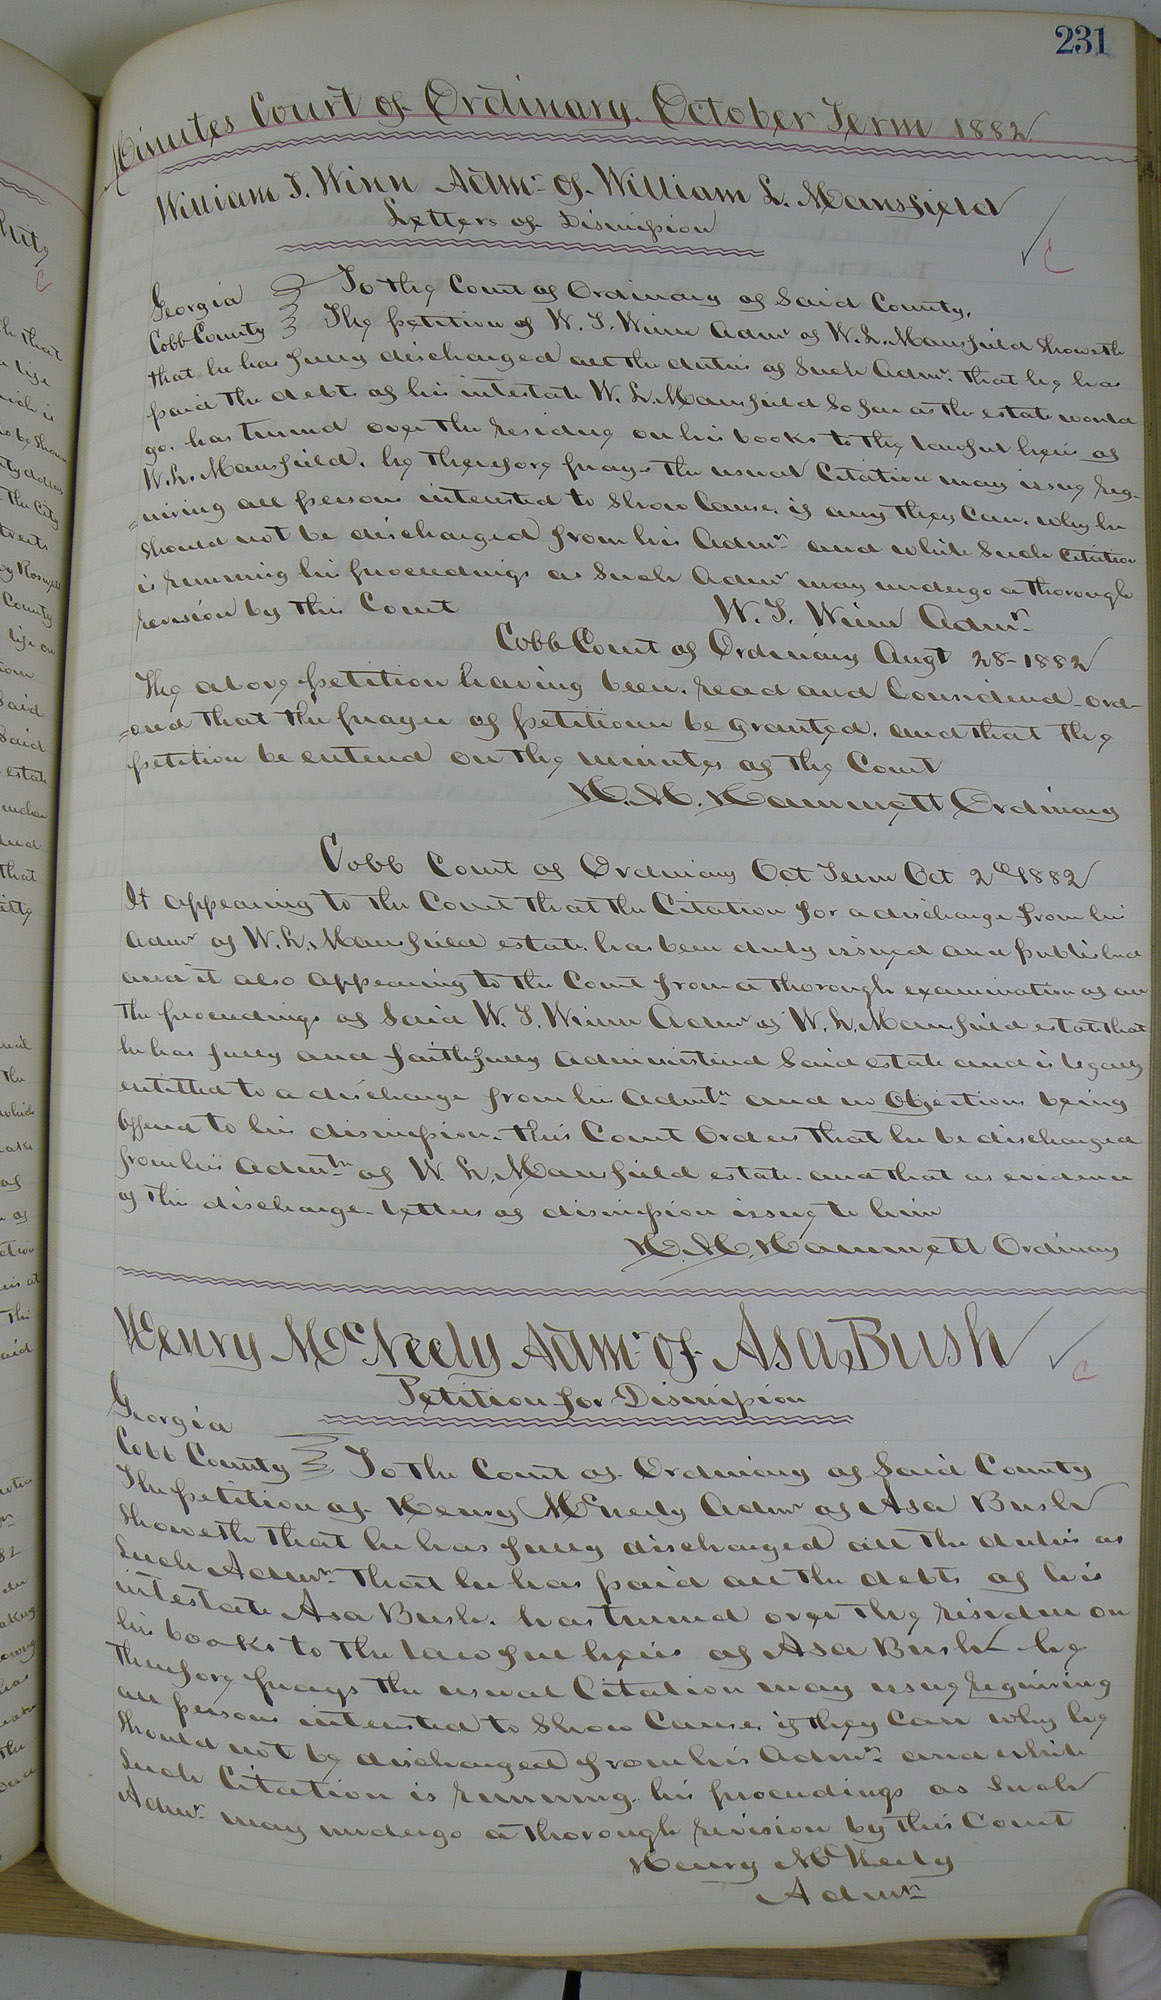 231
Minutes Court of Ordinary. October Term 1882
William T. Winn Admr. of William L. Mansfield
Letters of Dismission
C
Georgia To the Court of Ordinary of Said County,
Cobb County The petition of W. T. Winn Admr of W. L. Mansfield Showeth
that he has fully discharged all the duties of Such Admr. That he has
paid the debts of his intestate W. L. Mansfield So far as the estate would
go. has turned over the residue on his books to the lawful heirs of
W. L. Mansfield. he therefore prays the usual Citation may issue Req-
=uiring all persons interested to Show Cause. if any they Can. why he
Should not be discharged from his Admn. and while Such Citation
is running his proceedings as Such Admr may undergo a thorough
revision by this Court W. T. Winn Admr.
Cobb Court of Ordinary Augt 28-1882
The above petition having been. read and Considered ord-
=ered that the prayer of petitioner be granted. and that the
petition be entered on the minutes of the Court
H. M. Hammett Ordinary
Cobb Court of Ordinary Oct Term Oct 2d 1882
It appearing to the Court that the Citation for a discharge from his
Admr of W. L. Mansfield estate. has been duly issued and published
and it also appearing to the Court from a thorough examination of all
the proceedings of Said W. T. Winn Admr of W. L. Mansfield estate that
he has fully and faithfully administered Said estate and is legally
entitled to a discharge from his Admtn and no Objections being
Offered to his dismission. this Court Orders that he be discharged
from his Admtn of W. L. Mansfield estate. and that as evidence
of this discharge. letters of dismission issue to him
H. M. Hammett Ordinary
Henry McNeely Admr. of Asa Bush
C
Petition for Dismission
Georgia
Cobb County To the Court of Ordinary of Said County
The petition of Henry McNeely Admr of Asa Bush
Showeth that he has fully discharged all the duties as
Such Admr. That he has paid all the debts of his
intestate Asa Bush. has turned over the residue on
his books to the lawful heirs of Asa Bush he
therefore prays the usual Citation may issue requiring
all persons interested to Show Cause. if they Can why he
Should not be discharged from his Admn. and while
Such Citation is running. his proceedings as Such
Admr. may undergo a thorough revision by this Court
Henry McNeely
Admr